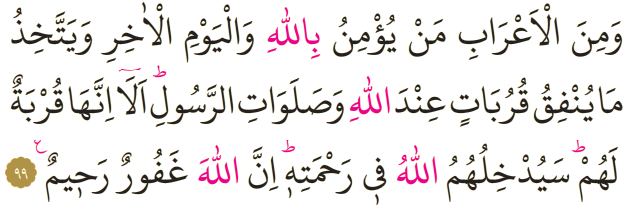 وَمِنَ الْاَعْرَابِ مَنْ يُؤْمِنُ بِاللّٰهِ وَالْيَوْمِ الْاٰخِرِ وَيَتَّخِذُ
مَا يُنْفِقُ قُرُبَاتٍ عِنْدَ اللّٰهِ وَصَلَوَاتِ الرَّسُولِۜ اَلَٓا اِنَّهَا قُرْبَةٌ
لَهُمْۜ سَيُدْخِلُهُمُ اللّٰهُ ف۪ي رَحْمَتِه۪ۜ اِنَّ اللّٰهَ غَفُورٌ رَح۪يمٌ۟ ﴿٩٩﴾